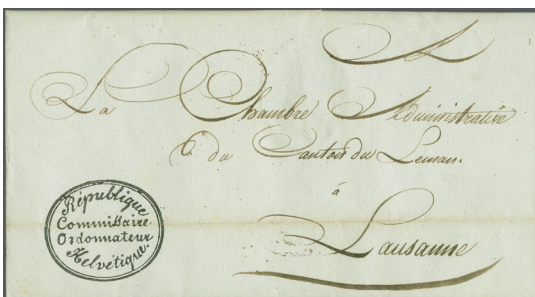 A
La Chambre Administrative
du Canton du Leman.
à
Lausanne
République
Commissaire
Ordonnateur
Helvétique.